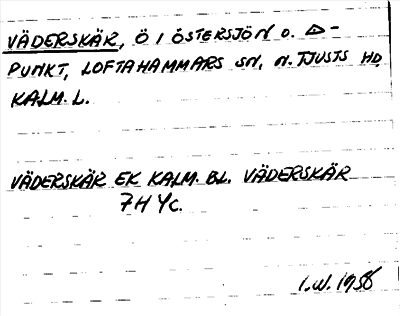 VÄDERSKÄR, Ö I ÖSTERSJÖN O. △-
PUNKT, LOFTAHAMMARS SN, N. TJUSTS HD,
KALM. L.
VÄDERSKÄR EK KALM. BL. VÄDERSKÄR
7H 4c.
I.W. 1956